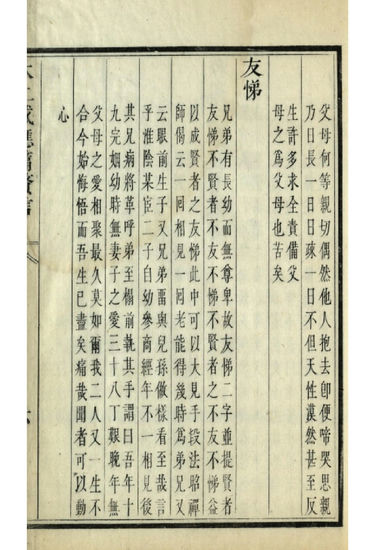 父母何等親切偶然他人抱去卽便啼哭思親
乃日長一日日疎一日不但天性漠然甚至反
生許多求全責備父
母之爲父母也苦矣
友悌
兄弟有長幼而無尊卑故友悌二字並提賢者
友悌不賢者不友不悌不賢者之不友不悌益
以成賢者之友悌此中可以大見手段法昭禪
師偈云一回相見一回老能得幾時爲弟兄又
云眼前生子又兄弟畱與兒孫做樣看至哉言
乎淮陰某宦二子自幼參商經年不一相見後
其兄病將革呼弟至榻前執其手謂曰吾年十
九完姻幼時無妻子之愛三十八丁艱晚年無
父母之愛相聚最久莫如爾我二人又一生不
合今始悔悟而吾生已盡矣痛哉聞者可以動
心
太上感應篇贅言